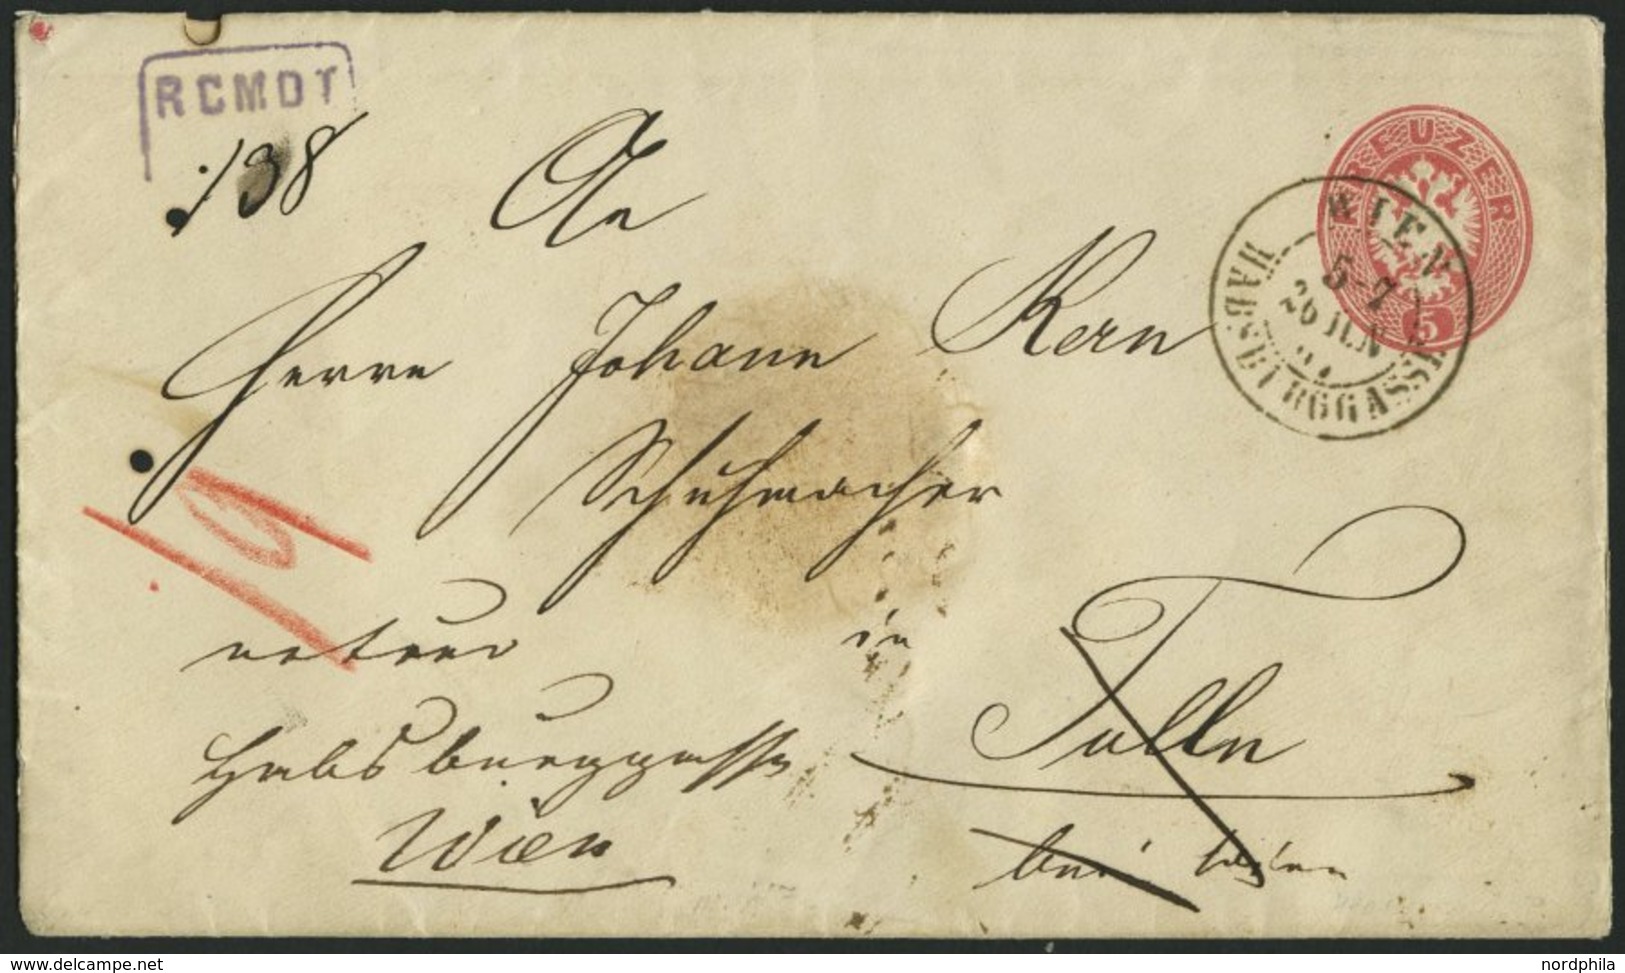 RCMDT
138
An
KREUZER
5
WIEN
5-7
26 JUN
HABSBURGGASSE
Herrn Johann Kern
Schuhmacher
19
retour in
Habsburggasse Tulln
Wien
bei Wien
www.delcampe.net
nordphila